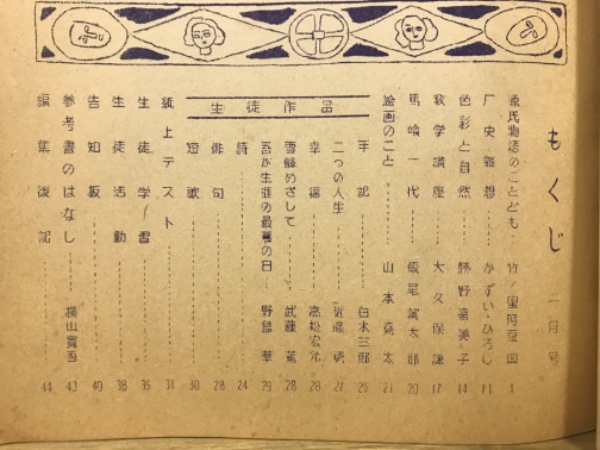 もくじ 二月号
源氏物語のことども 竹ノ里阿 1
厂史雑想 かずい・ひろし 11
色彩と自然 勝野嘉美子 14
数学講座 大久保謙 17
馬喰一代 飯尾誠太郎 20
絵画のこと 山本 太 21
生徒作品
手記 白木三郎 25
二つの人生 近藤 27
幸福 高松宏允 28
雪線めざして 武藤薫 28
吾が生涯の最良の日 野 29
詩 24
俳句 28
短歌 30
紙上テスト 31
生徒学習 35
生徒活動 38
告知板 40
参考書のはなし 横山寛吾 43
編集後記 44